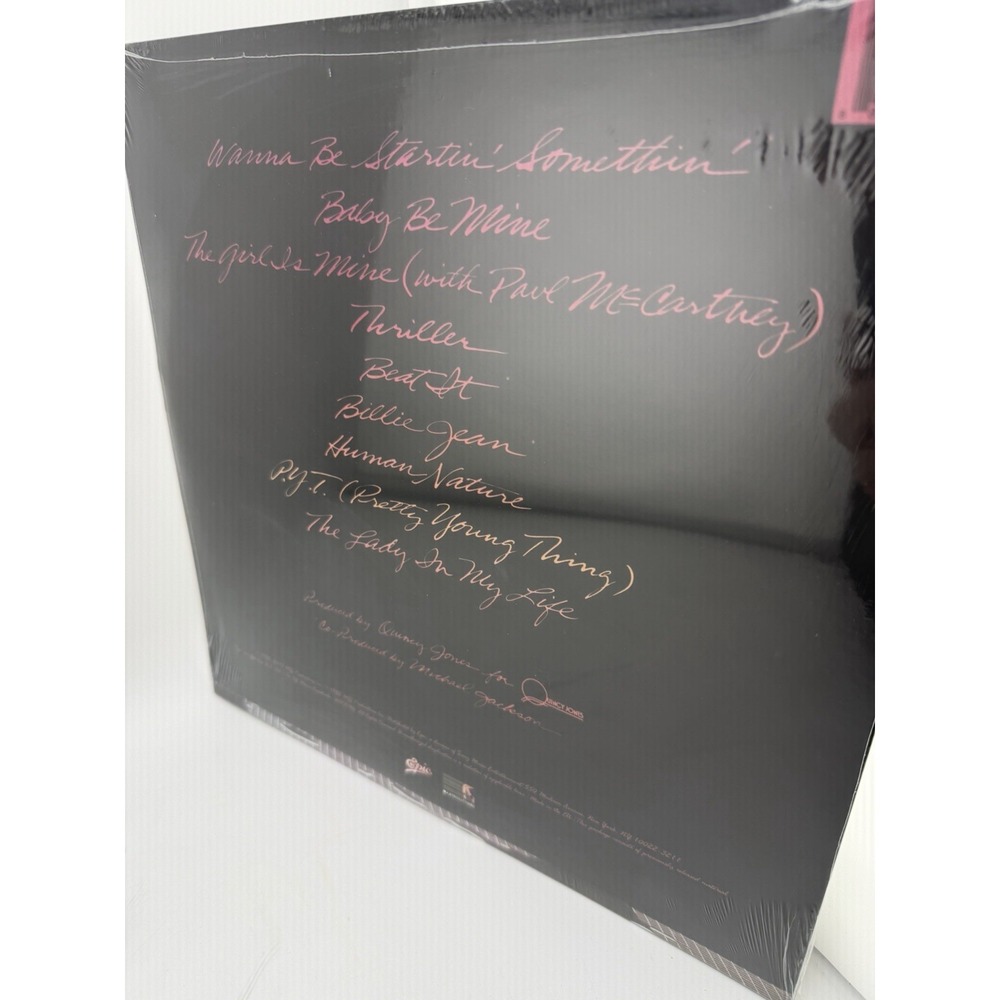 Wanna Be Startin' Somethin'
Baby Be Mine
The Girl Is Mine (with Paul McCartney)
Thriller
Beat It
Billie Jean
Human Nature
P.Y.T. (Pretty Young Thing)
The Lady In My Life
Produced by Quincy Jones for
Co-Produced by Michael Jackson
Epic